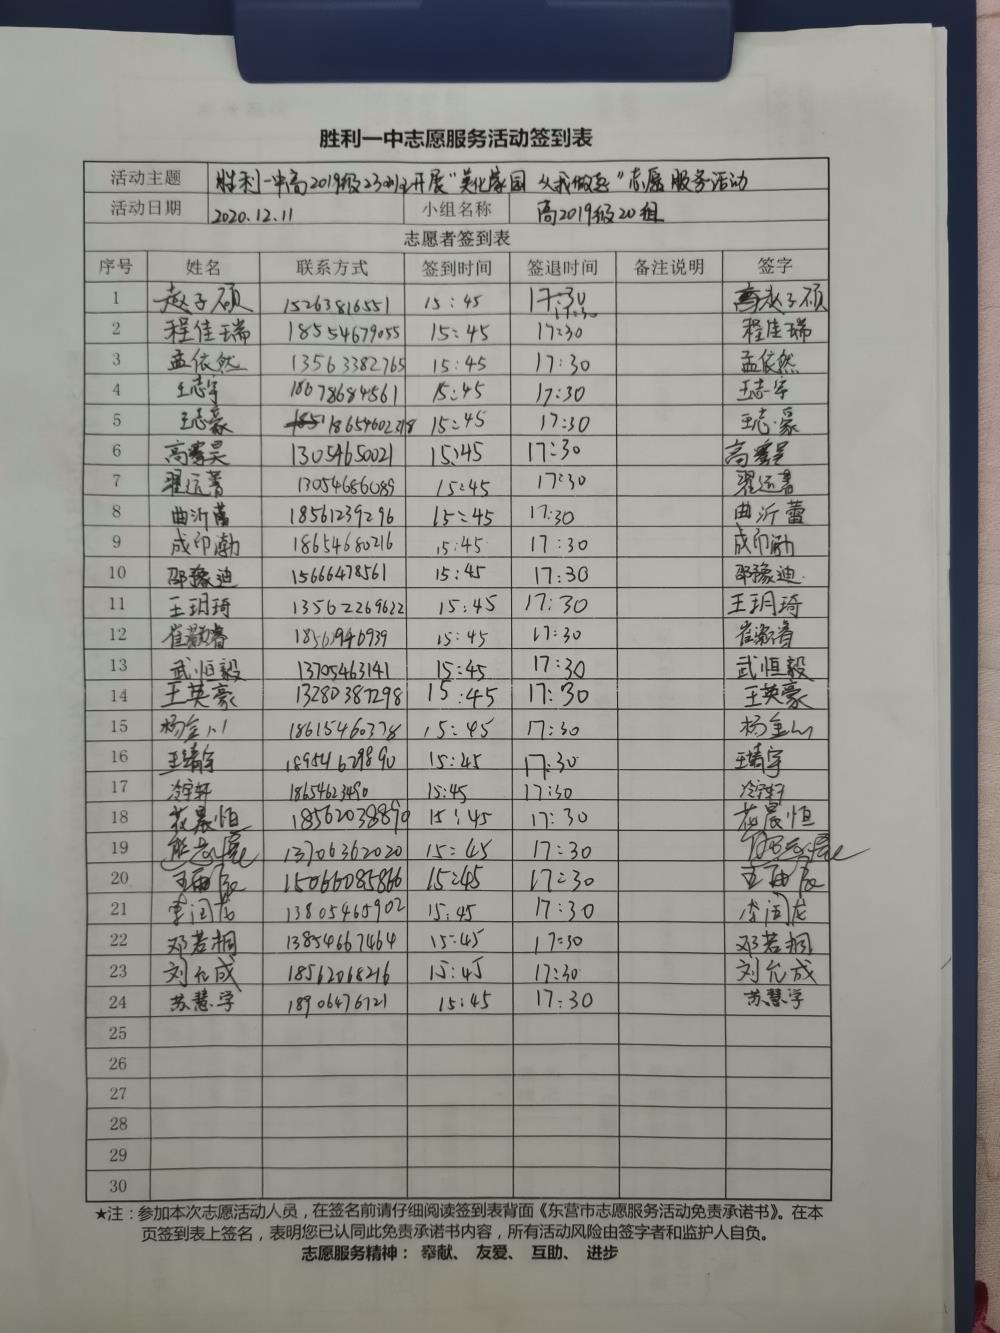 胜利一中志愿服务活动签到表
活动主题 胜利一中高2019级23班开展"美化家园 从我做起"志愿服务活动
活动日期 2020.12.11 小组名称 高2019级20组
志愿者签到表
序号 姓名 联系方式 签到时间 签退时间 备注说明 签字
1 赵子硕 15263816551 15:45 17:30 17:30 赵子硕
2 程佳瑞 18554679055 15:45 17:30 程佳瑞
3 孟依然 13563382765 15:45 17:30 孟依然
4 王志宇 18678684561 15:45 17:30 王志宇
5 王志豪 18654602318 15:45 17:30 王志豪
6 高 昊 13054650021 15:45 17:30 高
7 翟运 13054686089 15:45 17:30 翟运
8 曲沂蕾 18561239296 15:45 17:30 曲沂蕾
9 成印渤 18654680216 15:45 17:30 成印渤
10 邵豫迪 15666478561 15:45 17:30 邵豫迪
11 王玥琦 13562269622 15:45 17:30 王玥琦
12 崔 睿 15:45 17:30 崔
13 武恒毅 13705463141 15:45 17:30 武恒毅
14 王英豪 13280387298 15:45 17:30 王英豪
15 杨金川 18615460378 15:45 17:30 杨金
16 王靖宇 18954629890 15:45 17:30 王靖宇
17 冷宇轩 18654623490 15:45 17:30 冷宇轩
18 晨恒 18562038890 15:45 17:30 晨恒
19 13706362020 15:45 17:30
20 王 15066085866 15:45 17:30 王
21 李闰 13805465902 15:45 17:30 李闰
22 邓若桐 13854667464 15:45 17:30 邓若桐
23 刘允成 18562068216 15:45 17:30 刘允成
24 苏慧学 18906476721 15:45 17:30 苏慧学
25
26
27
28
29
30
★注：参加本次志愿活动人员，在签名前请仔细阅读签到表背面《东营市志愿服务活动免责承诺书》。在本
页签到表上签名，表明您已认同此免责承诺书内容，所有活动风险由签字者和监护人自负。
志愿服务精神： 奉献、 友爱、 互助、 进步